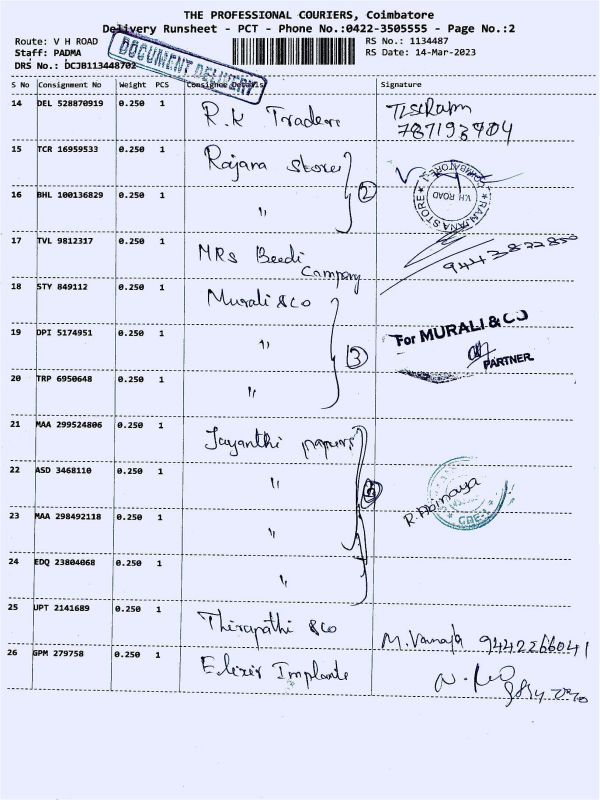 THE PROFESSIONAL COURIERS, Coimbatore
Delivery Runsheet - PCT - Phone No.:0422-3505555 - Page No.:2
Route: V H ROAD
Staff: PADMA
DRS No.: DCJB113448702
DOCUMENT DELIVERY
RS No.: 1134487
RS Date: 14-Mar-2023
S No Consignment No Weight PCS Consignee Details Signature
14 DEL 528870919 0.250 1 R.K Traders 7871937404
15 TCR 16959533 0.250 1 Rajana Store
16 BHL 100136829 0.250 1 〃 2
RANJANA STORE V.H. ROAD COIMBATORE-1
17 TVL 9812317 0.250 1 MRS Beedi Company 9443822850
18 STY 849112 0.250 1 Murali & Co
19 DPI 5174951 0.250 1 〃 3
For MURALI & CO
PARTNER
20 TRP 6950648 0.250 1 〃
21 MAA 299524806 0.250 1 Jayanthi papers
22 ASD 3468110 0.250 1 〃 R. Abinaya
23 MAA 298492118 0.250 1 〃
24 EDQ 23804068 0.250 1 〃
25 UPT 2141689 0.250 1 Thirupathi & Co M. Vanaja 9442266041
26 GPM 279758 0.250 1 Elixir Implants